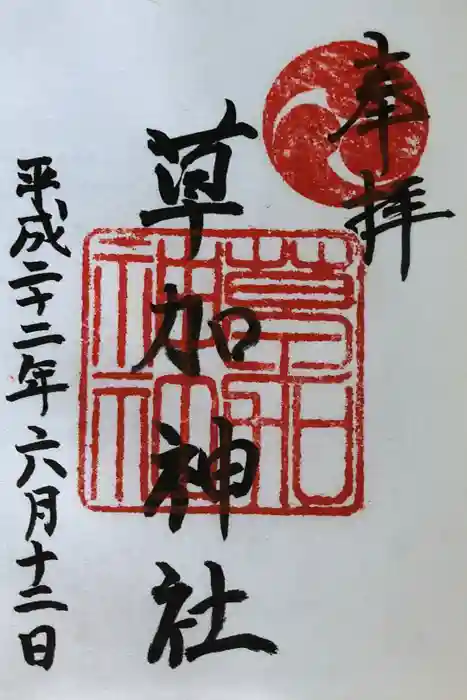 奉拝
草加神社
平成二十二年六月十二日